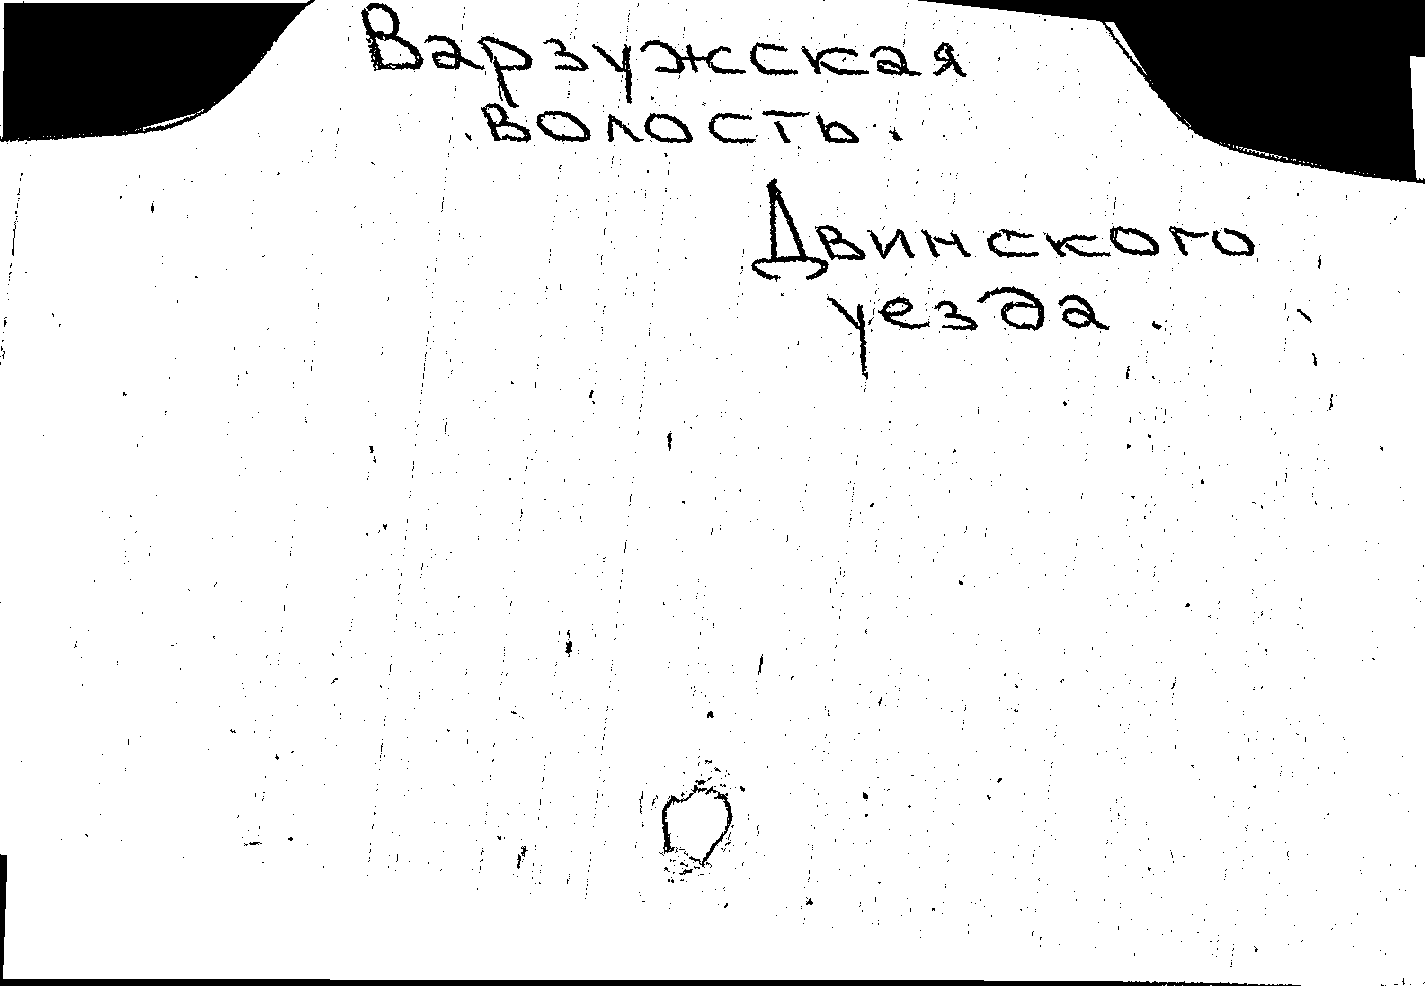 Варзужсская
волость.
Двинского
уезда.